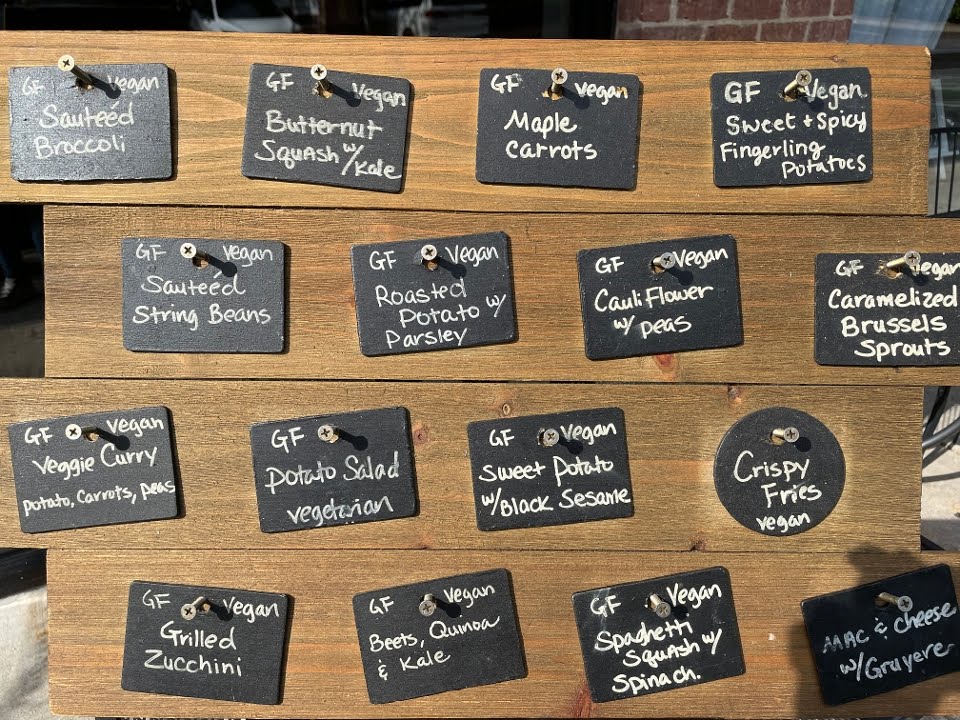 GF Vegan
Sauteéd
Broccoli
GF Vegan
Butternut
Squash w/
Kale
GF Vegan
Maple
Carrots
GF Vegan.
Sweet + Spicy
Fingerling
Potatoes
GF Vegan
Sauteéd
String Beans
GF Vegan
Roasted
Potato w/
Parsley
GF Vegan
Cauliflower
w/ peas
GF Vegan
Caramelized
Brussels
Sprouts
GF Vegan
Veggie Curry
potato, carrots, peas
GF
Potato Salad
vegetarian
GF Vegan
Sweet Potato
w/Black Sesame
Crispy
Fries
vegan
GF Vegan
Grilled
Zucchini
GF Vegan
Beets, Quinoa
& Kale
GF Vegan
Spaghetti
Squash w/
Spinach.
MAC & Cheese
w/Gruyere